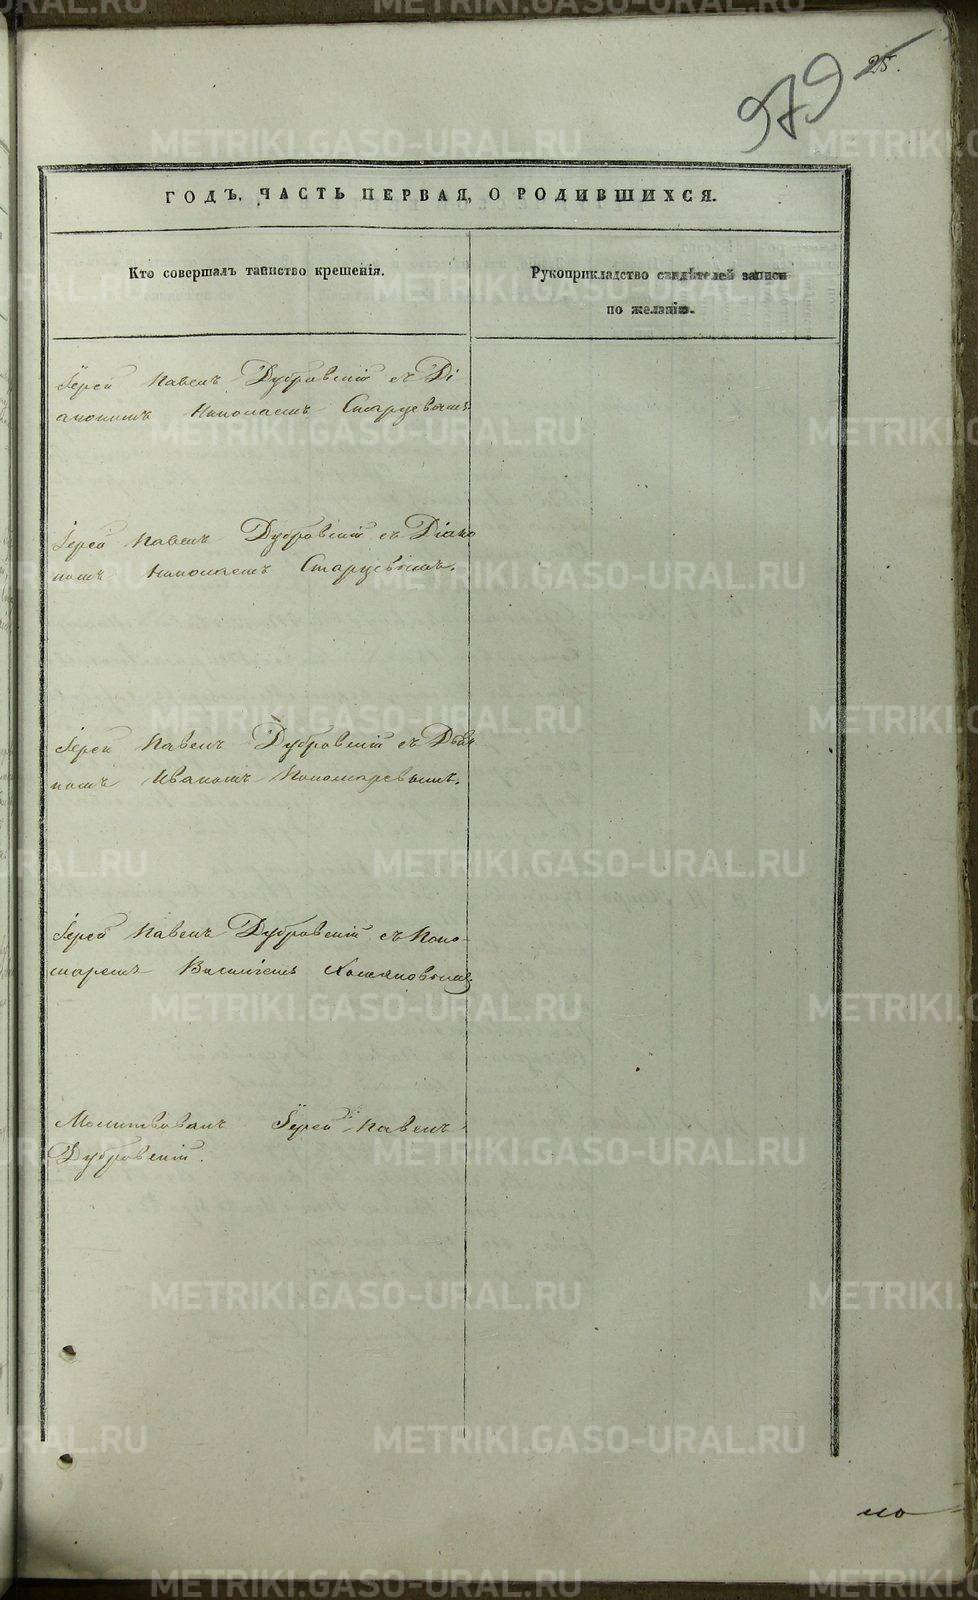 979
25.
ГОДЪ, ЧАСТЬ ПЕРВАЯ, О РОДИВШИХСЯ.
Кто совершалъ таинство крещенія.
Рукоприкладство свидѣтелей записи
по желанію.
Іерей Павелъ Дубровскій съ Ді
акономъ Николаемъ Старцевымъ.
Іерей Павелъ Дубровскій съ Діако
номъ Николаемъ Старцевымъ.
Іерей Павелъ Дубровскій съ
номъ Иваномъ Пономаревымъ.
Іерей Павелъ Дубровскій съ Поно-
маремъ Василіемъ
Молитвовалъ Іерей Павелъ
Дубровскій.
METRIKI.GASO-URAL.RU